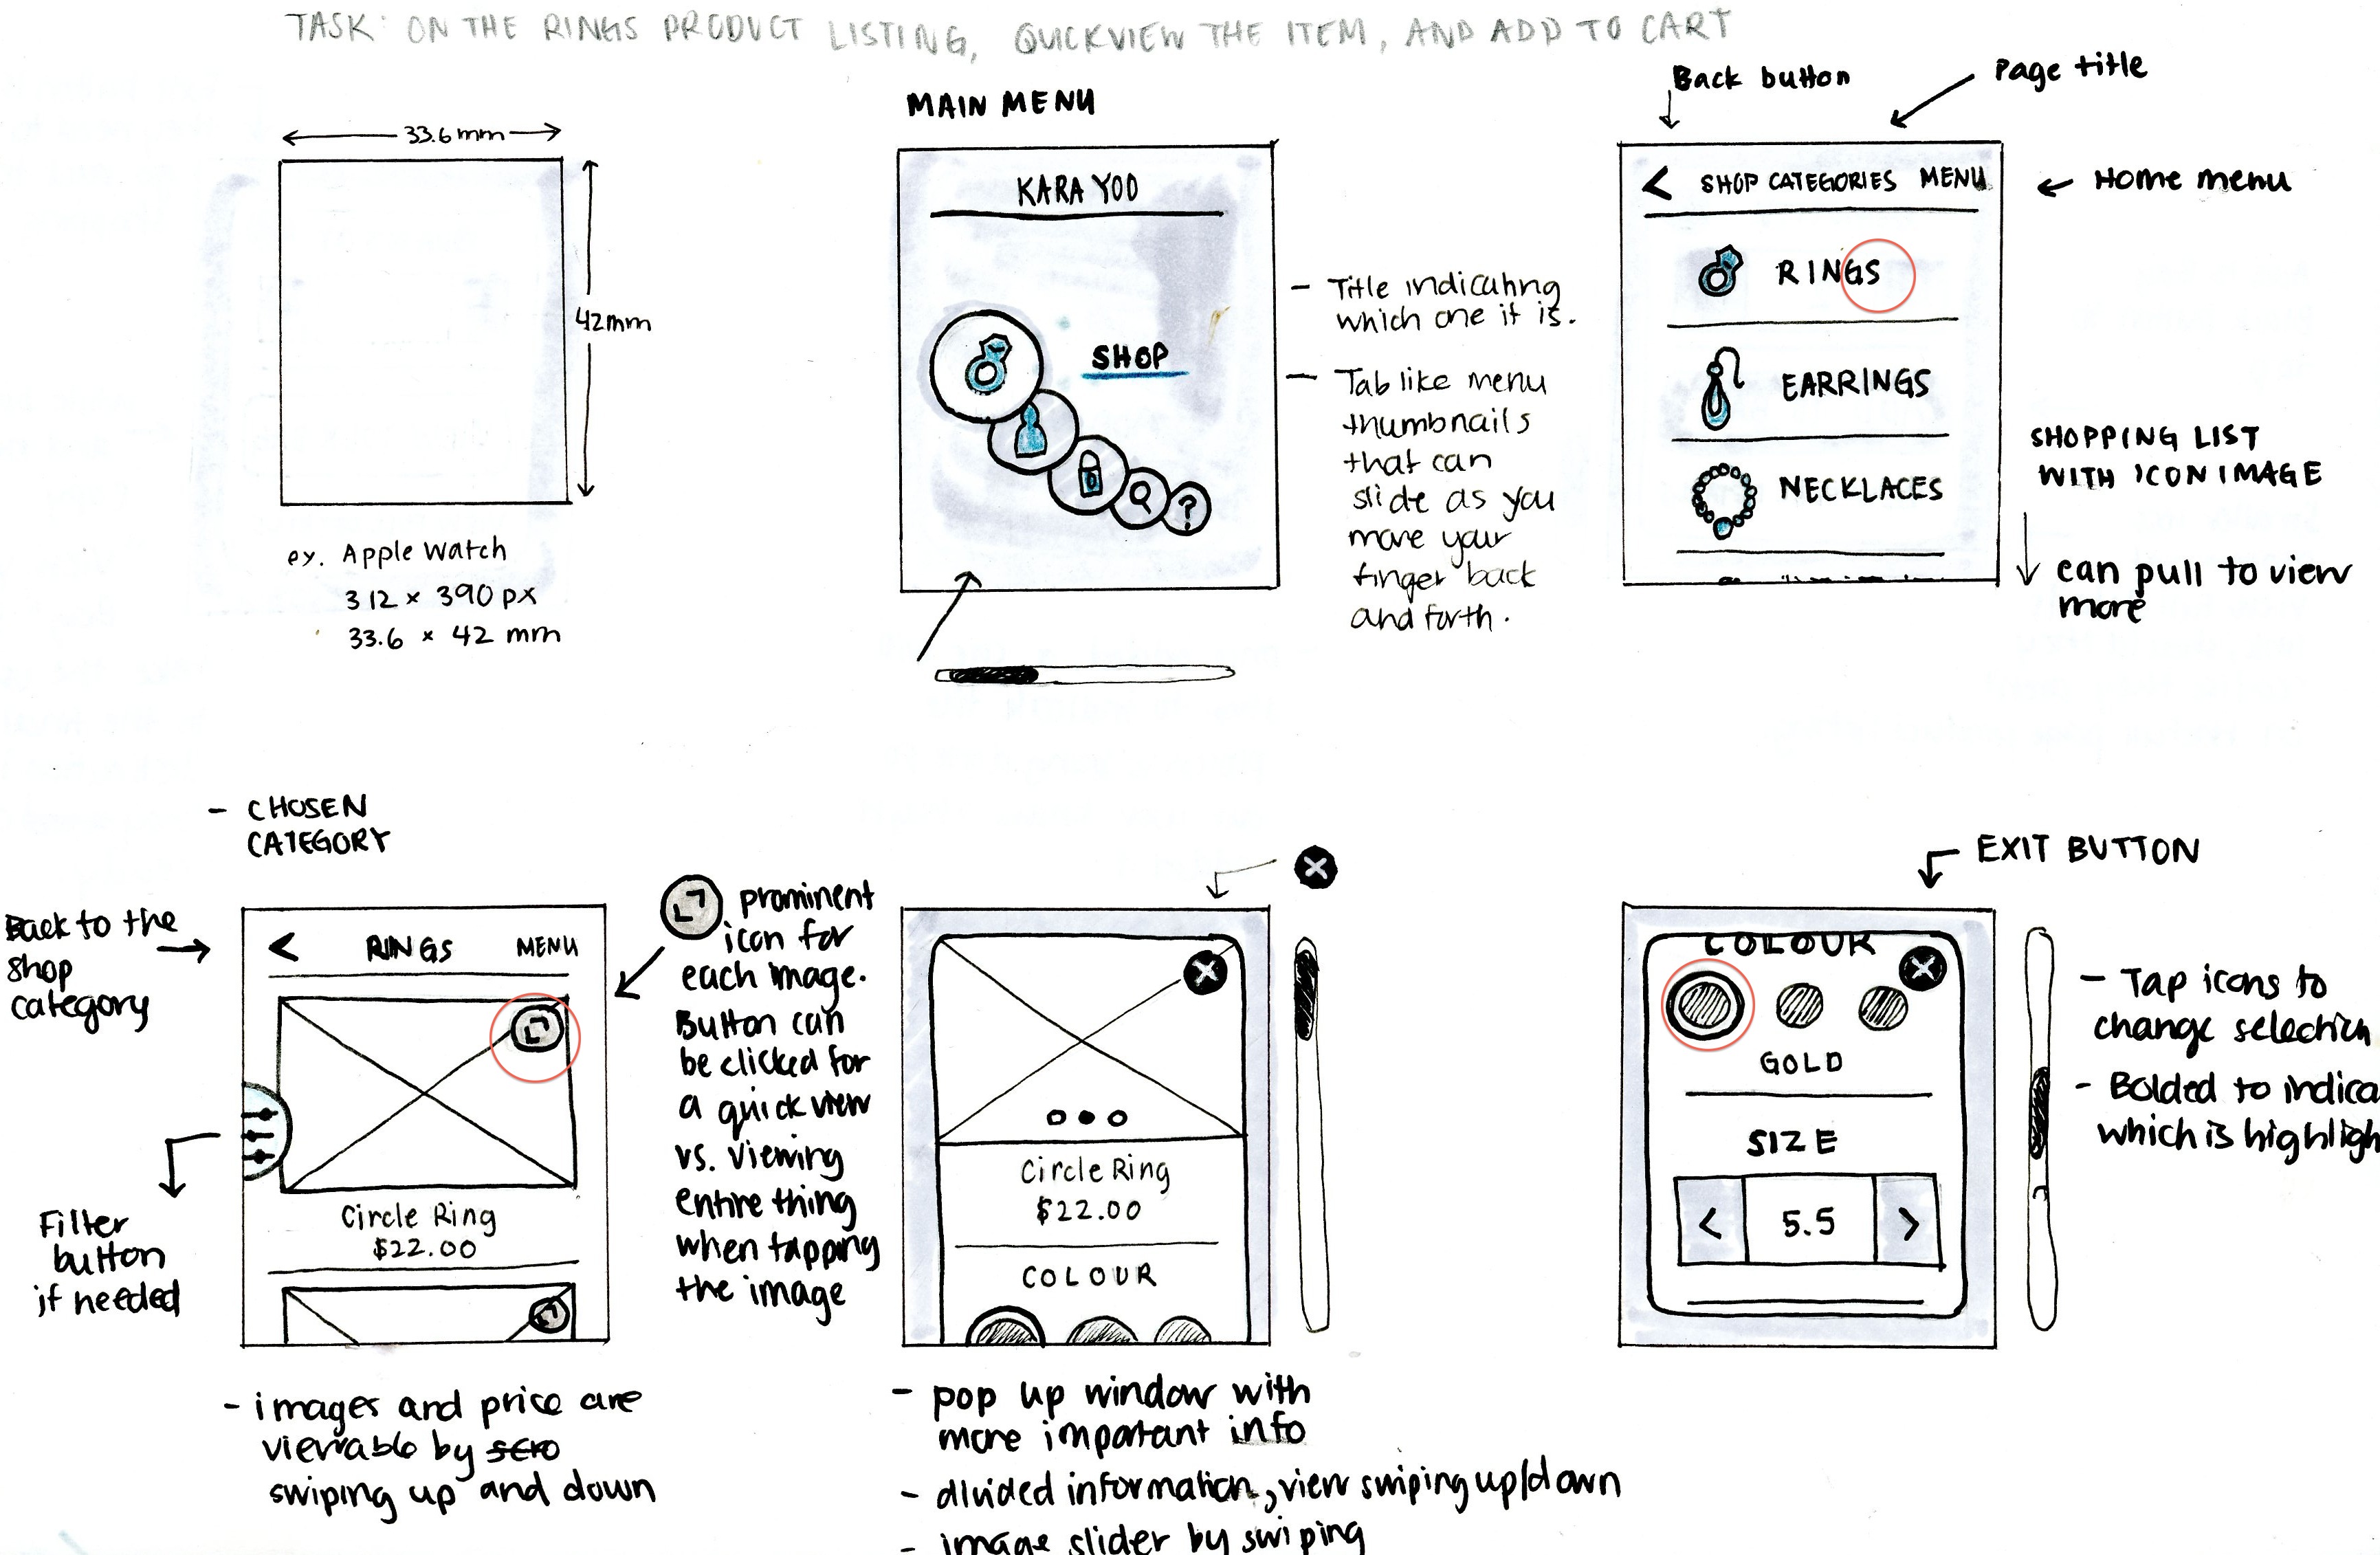 TASK: ON THE RINGS PRODUCT LISTING, QUICKVIEW THE ITEM, AND ADD TO CART
33.6 mm
42mm
ex. Apple Watch
312 x 390 px
33.6 x 42 mm
MAIN MENU
KARA YOO
SHOP
?
- Title indicating
which one it is.
- Tab like menu
thumbnails
that can
slide as you
move your
finger back
and forth.
Back button
Page title
< SHOP CATEGORIES MENU
← Home menu
RINGS
EARRINGS
NECKLACES
SHOPPING LIST
WITH ICON IMAGE
can pull to view
more
- CHOSEN
CATEGORY
Back to the
shop
category
< RINGS MENU
Filter
button
if needed
Circle Ring
$22.00
prominent
icon for
each image.
Button can
be clicked for
a quick view
vs. viewing
entire thing
when tapping
the image
- images and price are
viewable by scro
swiping up and down
X
X
Circle Ring
$22.00
COLOUR
- pop up window with
more important info
- divided information, view swiping up/down
- image slider by swiping
EXIT BUTTON
COLOUR
X
GOLD
SIZE
< 5.5 >
- Tap icons to
change selection
- Bolded to indica
which is highligh